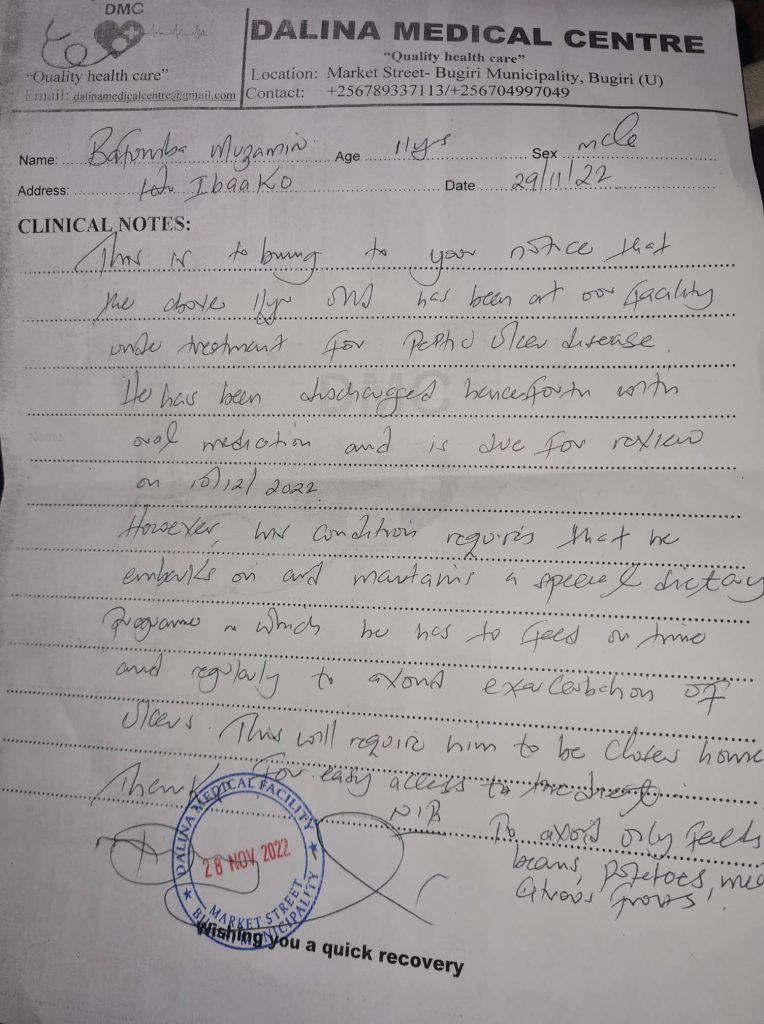 DMC
"Quality health care"
Email: dalinamedicalcentre@gmail.com
DALINA MEDICAL CENTRE
"Quality health care"
Location: Market Street- Bugiri Municipality, Bugiri (U)
Contact: +256789337113/+256704997049
Name: Bafumba Muzamin Age 11yrs Sex male
Address: Ibaako Date 29/11/22
CLINICAL NOTES:
This is to bring to your notice that
the above 11yr has been at our facility
under treatment for Peptic Ulcer disease.
He has been discharged henceforth with
oral medication and is due for review
on 10/12/2022
However, his condition requires that he
embarks on and maintains a special dietary
programme in which he has to feed on time
and regularly to avoid exacerbation of
ulcers. This will require him to be closer home
for easy access to the diet
Thank
N/B
To avoid oily feeds
beans, potatoes,
citrus fruits!
DALINA MEDICAL FACILITY
28 NOV 2022
MARKET STREET
BUGIRI MUNICIPALITY
Wishing you a quick recovery